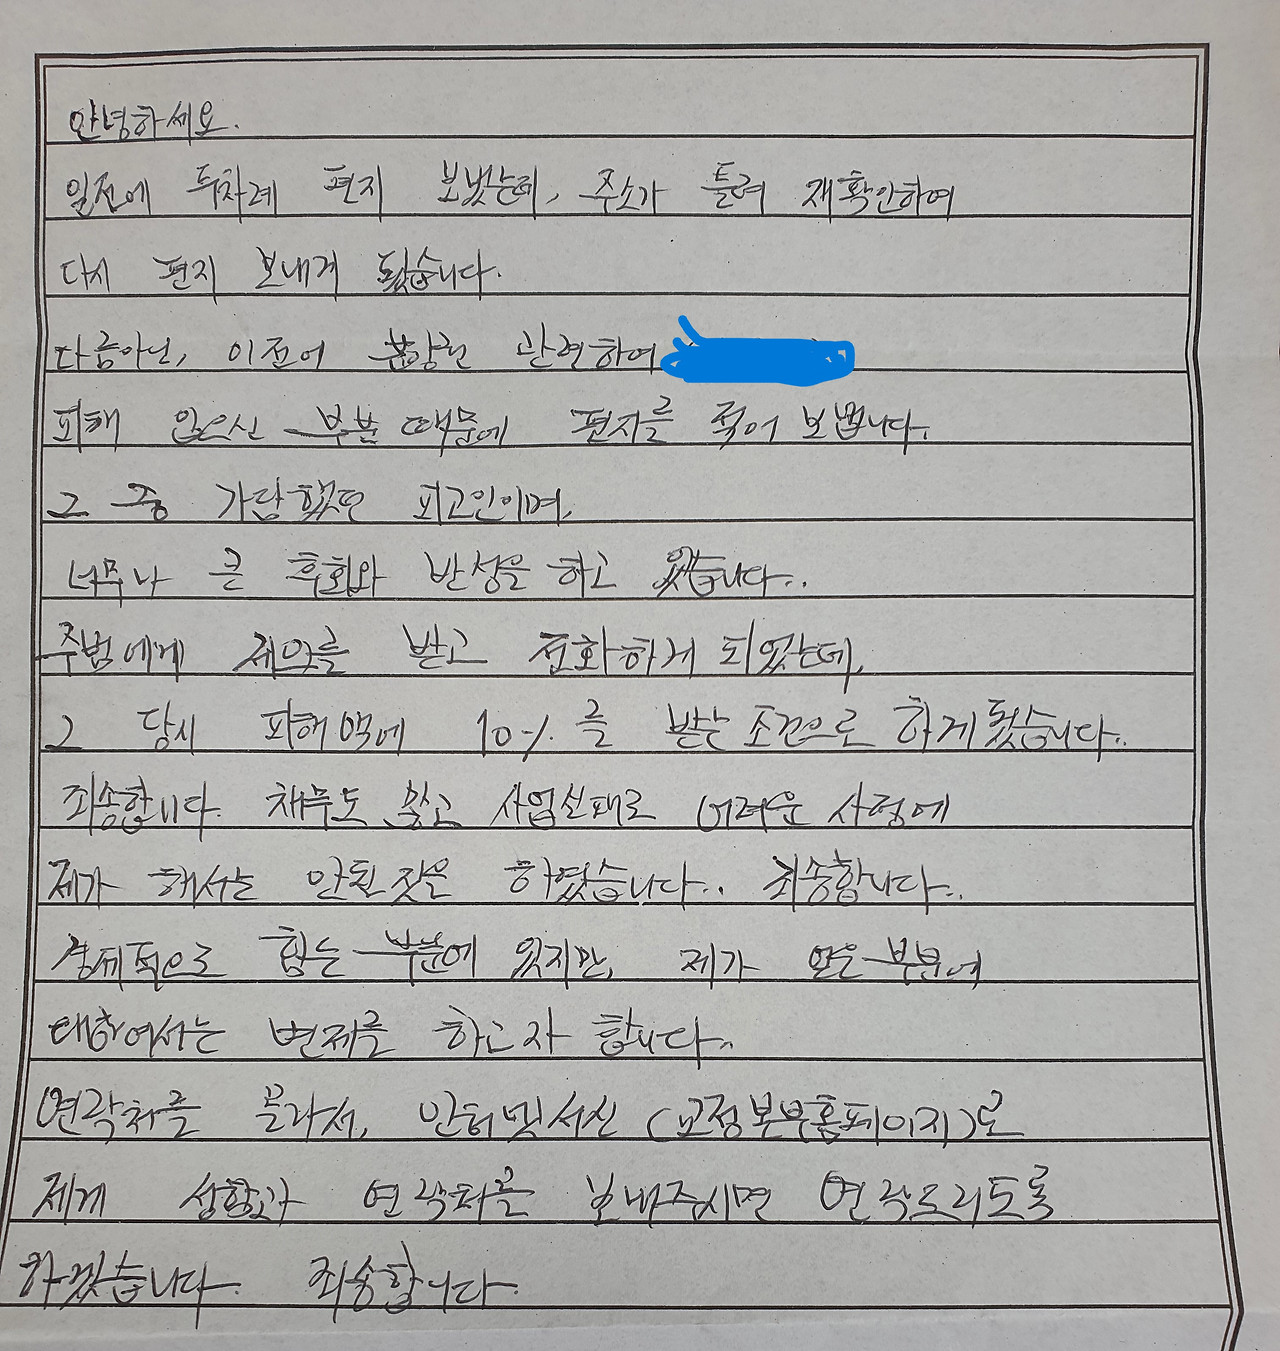 안녕하세요.
일전에 두차례 편지 보냈는데, 주소가 틀려 재확인하여
다시 편지 보내게 됐습니다.
다름아닌, 이전에 분양권 관련하여
피해 입으신 부분 때문에 편지를 적어 보냅니다.
그 중 가담했던 피고인이며,
너무나 큰 후회와 반성을 하고 있습니다..
주범에게 제의를 받고 전화하게 되었는데,
그 당시 피해액에 10%를 받는 조건으로 하게됐습니다..
죄송합니다. 채무도 있고 사업실패로 어려운 사정에
제가 해서는 안된짓을 하였습니다.. 죄송합니다..
경제적으로 힘든 부분에 있지만, 제가 얻은 부분에
대하여서는 변제를 하고자 합니다..
연락처를 몰라서, 인터넷서신 (교정본부홈페이지)로
제게 성함과 연락처를 보내주시면 연락드리도록
하겠습니다. 죄송합니다.